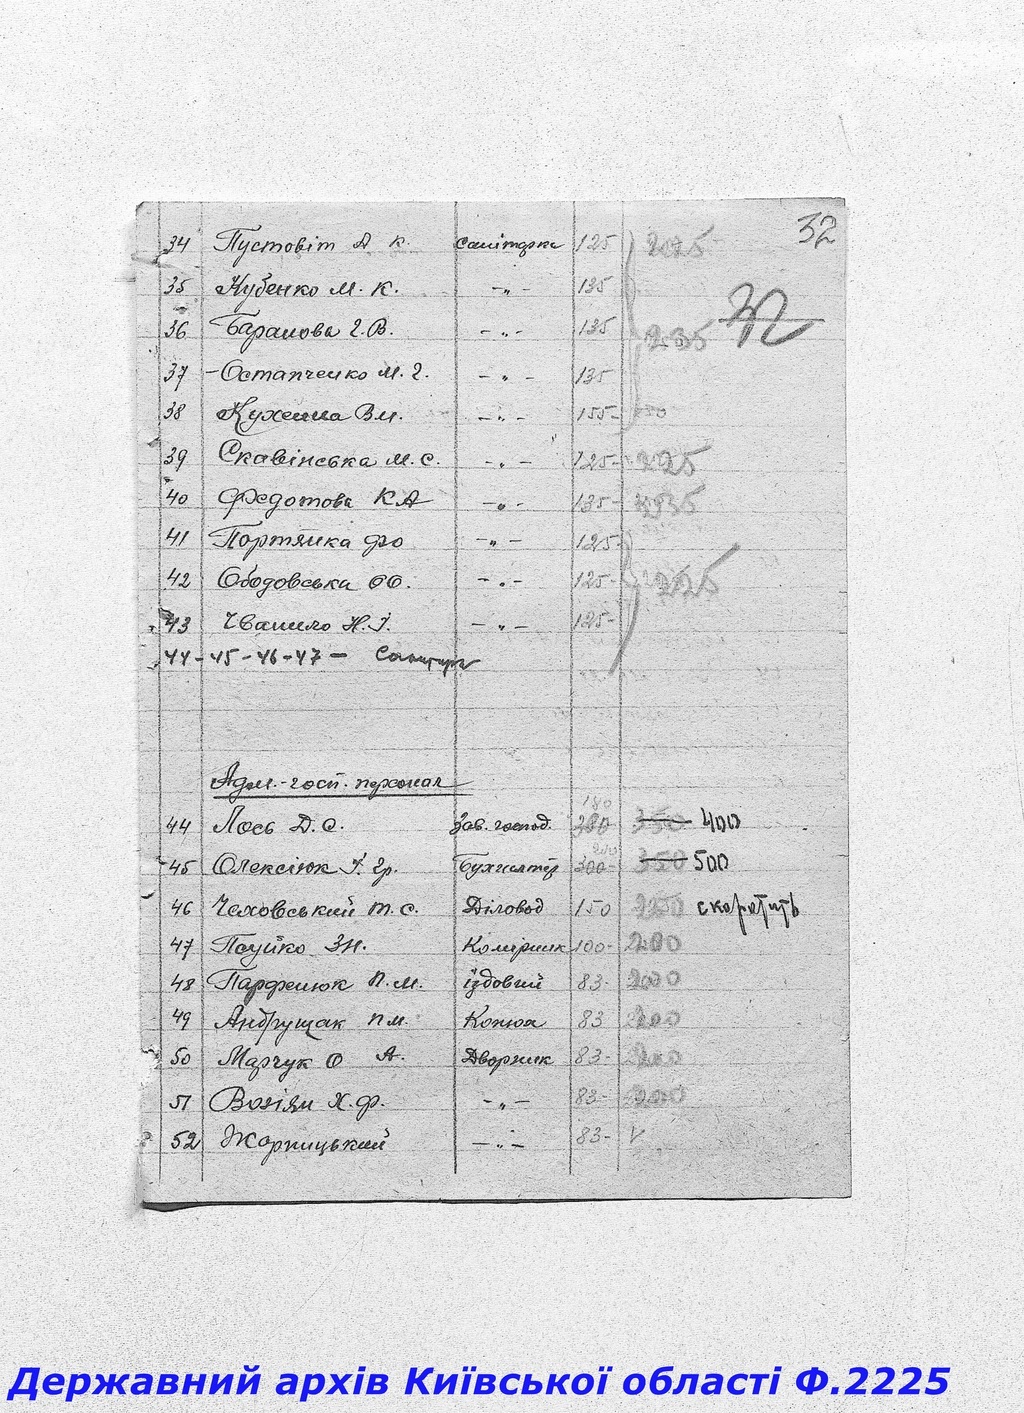 32
34 Пустовіт А К. санітарка 125 225
35 Кубенко М. К. -"- 135
32
36 Баранова Г.В. -"- 135 235
37 Остапченко М. Г. -"- 135
38 Кухенна Вм. -"- 155-
39 Скавінська М. С. -"- 125- 225
40 Федотова К А -"- 135- 235
41 Портянка фо -"- 125-
42 Ободовська ОО. -"- 125- 225
43 Іванило Н. І. -"- 125-
44-45-46-47- Санитары
Адм.-госп. персонал
180
44 Лось Д. С. Зав. господ. 380 350 400
45 Олексіюк І. Гр. Бухгалтер 300- 350 500
46 Чеховський т. с. Діловод 150 250 скоротить
47 Пацйко ЗН. Комірник 100- 200
48 Парфенюк П. М. їздовий 83- 200
49 Андрущак пм. Конюх 83 200
50 Марчук О А. Дворник 83- 200
51 Возіян Х. Ф. -"- 83- 200
52 Жорницький -"- 83- V
Державний архів Київської області Ф.2225